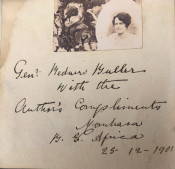 Genl. Redvers Buller
With the
Author's Compliments
Mombasa
B. E. Africa
25-12-1901